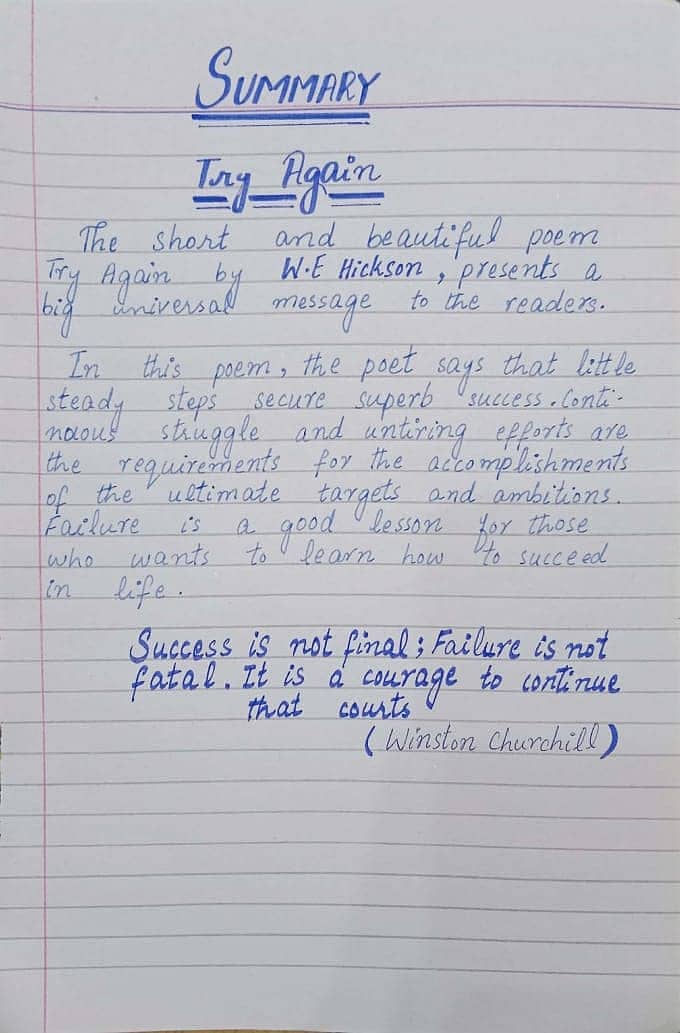 SUMMARY
Try Again
The short and beautiful poem
Try Again by W.E Hickson, presents a
big universal message to the readers.
In this poem, the poet says that little
steady steps secure superb success. Conti-
nuous struggle and untiring efforts are
the requirements for the accomplishments
of the ultimate targets and ambitions.
Failure is a good lesson for those
who wants to learn how to succeed
in life.
Success is not final; Failure is not
fatal. It is a courage to continue
that courts
(Winston Churchill)